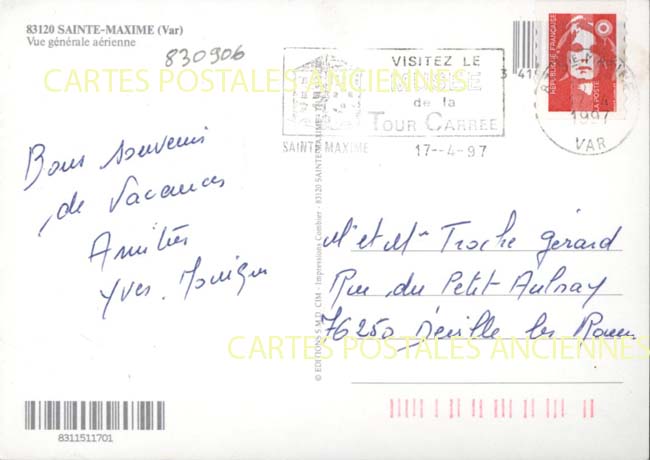 83120 SAINTE-MAXIME (Var)
Vue générale aérienne
830906
VISITEZ LE
MUSEE
de la
TOUR CARREE
SAINTE MAXIME 17--4-97
REPUBLIQUE FRANÇAISE
LA POSTE
1997
VAR
CARTES POSTALES ANCIENNES
Bons souvenirs
de Vacances
Amitiés
Yves. Monique
© EDITIONS S.M.D. CIM - Impressions Combier - 83120 SAINTE-MAXIME
Mr et Mme Troche Gérard
Rue du Petit Aulnay
76250 Déville les Rouen
CARTES POSTALES ANCIENNES
8311511701